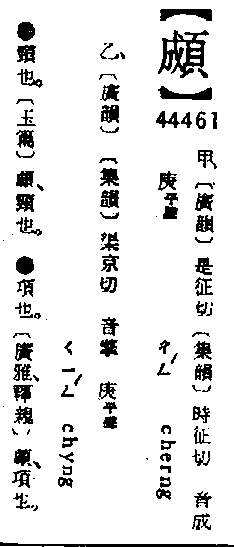 【䫆】
44461
甲、〔廣韻〕是征切〔集韻〕時征切 音成
庚平聲 ㄔㄥˊ cherng
乙、〔廣韻〕〔集韻〕渠京切 音擎 庚平聲
ㄑㄧㄥˊ chyng
●頸也。〔玉篇〕䫆、頸也。●項也。〔廣雅、釋親〕䫆、項也。